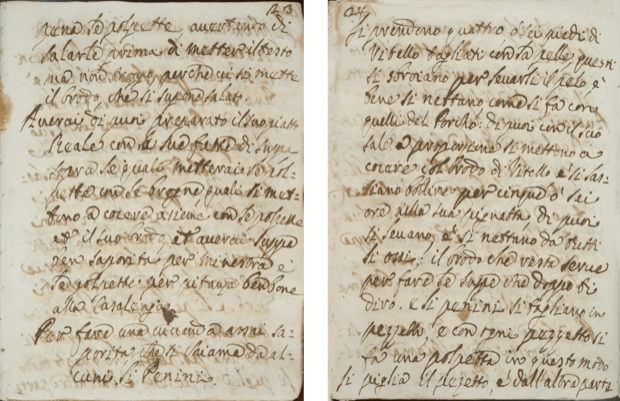 243
pena le polpette, avertendo di
salarle prima di metter il resto
ma non troppo, perche vi si mette
il brodo, che si supone salato.
Averai di puoi preparato il suo piatto
Reale con le sue fette di suppa
sopra le quali metterai le pol-
pette con le quali si met-
tono a cocere asieme con le polpette
et il suo brodo et averai suppa
ben saporita per minestra è
le polpette per pitanza
alla Casalenga.
Per fare una cucinda assai sa-
porita, che si chiama da al-
cuni si Penini.
244
Si prendono quattro ò sei piedi di
Vitello tagliati con la pelle, questi
si sbroiano per levarli il pelo, è
bene si nettano come si fa con
quelli del Porcho: di puoi con il suo
sale a proporzione si mettono a
cocere col brodo di Vitello è si las-
ciano bollire per cinque ò sei
ore alla sua pignatta, di puoi
si levano, è si nettano da tutti
si ossi: il brodo che resta serve
per fare le suppe che doppo ti
dirò. e si penini si tagliano in
pezzetti è con ogni pezzetto si
fà una polpetta in questo modo
si piglia il pezetto, è dall'altra parte